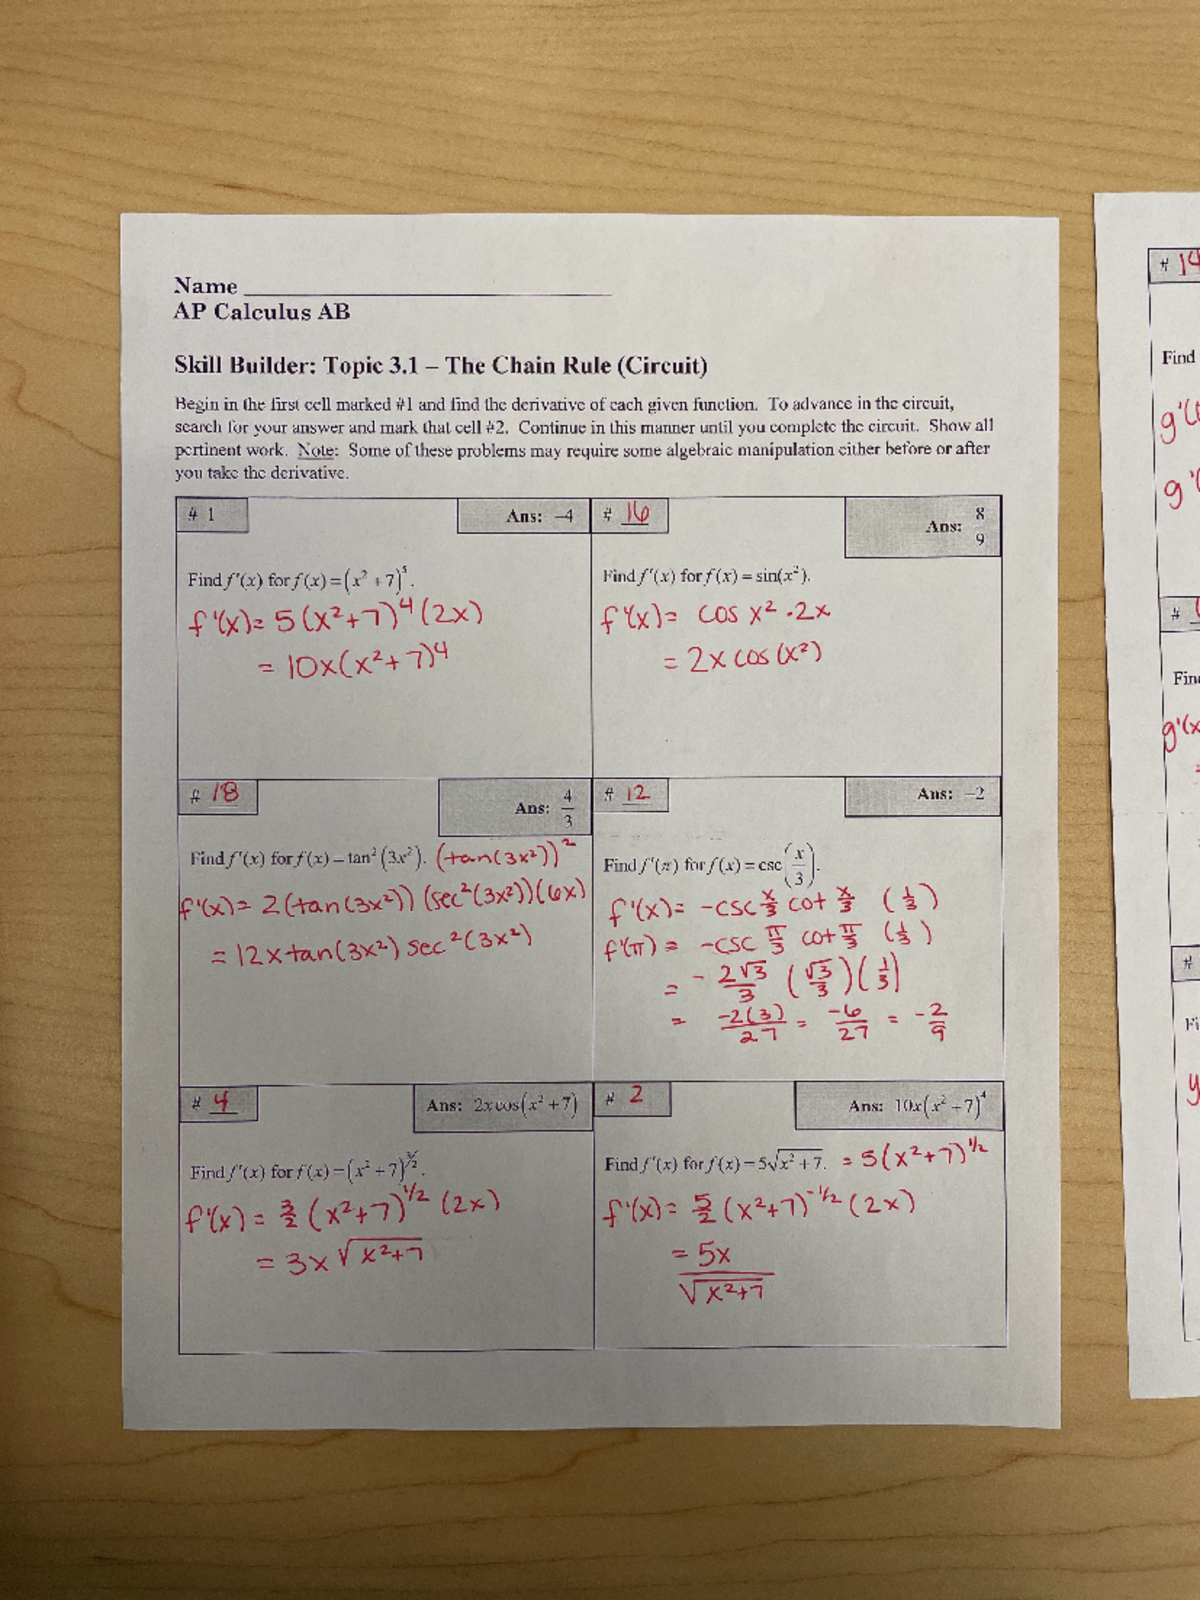 Name
AP Calculus AB
Skill Builder: Topic 3.1 – The Chain Rule (Circuit)
Begin in the first cell marked #1 and find the derivative of each given function. To advance in the circuit,
search for your answer and mark that cell #2. Continue in this manner until you complete the circuit. Show all
pertinent work. Note: Some of these problems may require some algebraic manipulation either before or after
you take the derivative.
# 1
Ans: –4
Find f'(x) for f(x) = (x² + 7)⁵.
f'(x) = 5(x²+7)⁴(2x)
= 10x(x²+7)⁴
# 16
Ans: 8/9
Find f'(x) for f(x) = sin(x²).
f'(x) = cos x² · 2x
= 2x cos(x²)
# 18
Ans: 4/3
Find f'(x) for f(x) = tan²(3x²). (tan(3x²))²
f'(x) = 2(tan(3x²))(sec²(3x²))(6x)
= 12x tan(3x²) sec²(3x²)
# 12
Ans: –2
Find f'(π) for f(x) = csc(x/3).
f'(x) = -csc x/3 cot x/3 (1/3)
f'(π) = -csc π/3 cot π/3 (1/3)
= - 2√3/3 (√3/3)(1/3)
= -2(3)/27 = -6/27 = -2/9
# 4
Ans: 2x cos(x² + 7)
Find f'(x) for f(x) = (x² + 7)^3/2.
f'(x) = 3/2 (x²+7)^1/2 (2x)
= 3x √x²+7
# 2
Ans: 10x(x² + 7)⁴
Find f'(x) for f(x) = 5√x² + 7. = 5(x²+7)^1/2
f'(x) = 5/2 (x²+7)^-1/2 (2x)
= 5x
√x²+7
# 14
Find
g'(
g'(
#
g'(x
#
y